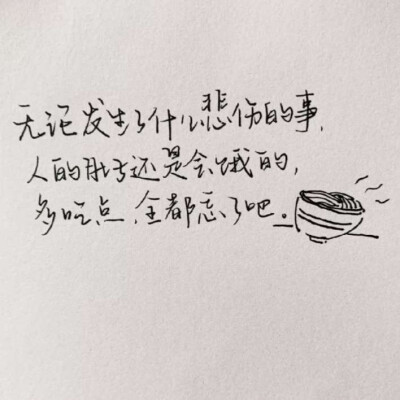 无论发生了什么悲伤的事，
人的肚子还是会饿的，
多吃点，全都忘了吧。